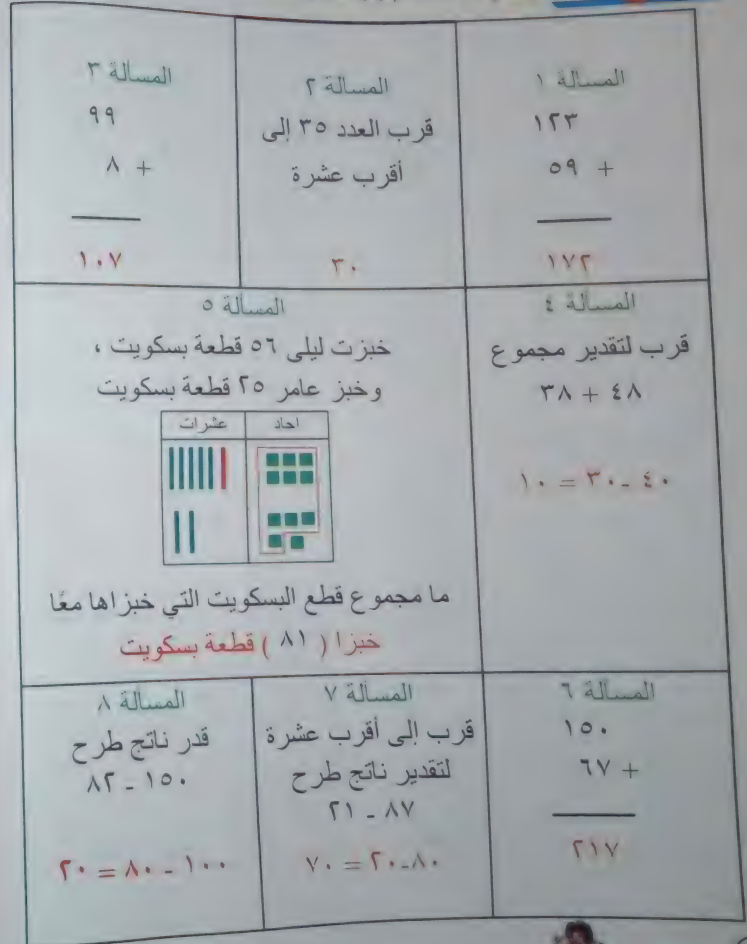 المسألة ١
١٢٣
٥٩ +
١٧٢
المسألة ٢
قرب العدد ٣٥ إلى
أقرب عشرة
٣٠
المسألة ٣
٩٩
٨ +
١٠٧
المسألة ٤
قرب لتقدير مجموع
٤٨ + ٣٨
٤٠ - ٣٠ = ١٠
المسألة ٥
خبزت ليلى ٥٦ قطعة بسكويت ،
وخبز عامر ٢٥ قطعة بسكويت
احاد
عشرات
ما مجموع قطع البسكويت التي خبزاها معًا
خبزا ( ٨١ ) قطعة بسكويت
المسألة ٦
١٥٠
٦٧ +
٢١٧
المسألة ٧
قرب إلى أقرب عشرة
لتقدير ناتج طرح
٨٧ - ٢١
٨٠-٢٠ = ٧٠
المسألة ٨
قدر ناتج طرح
١٥٠ - ٨٢
١٠٠ - ٨٠ = ٢٠